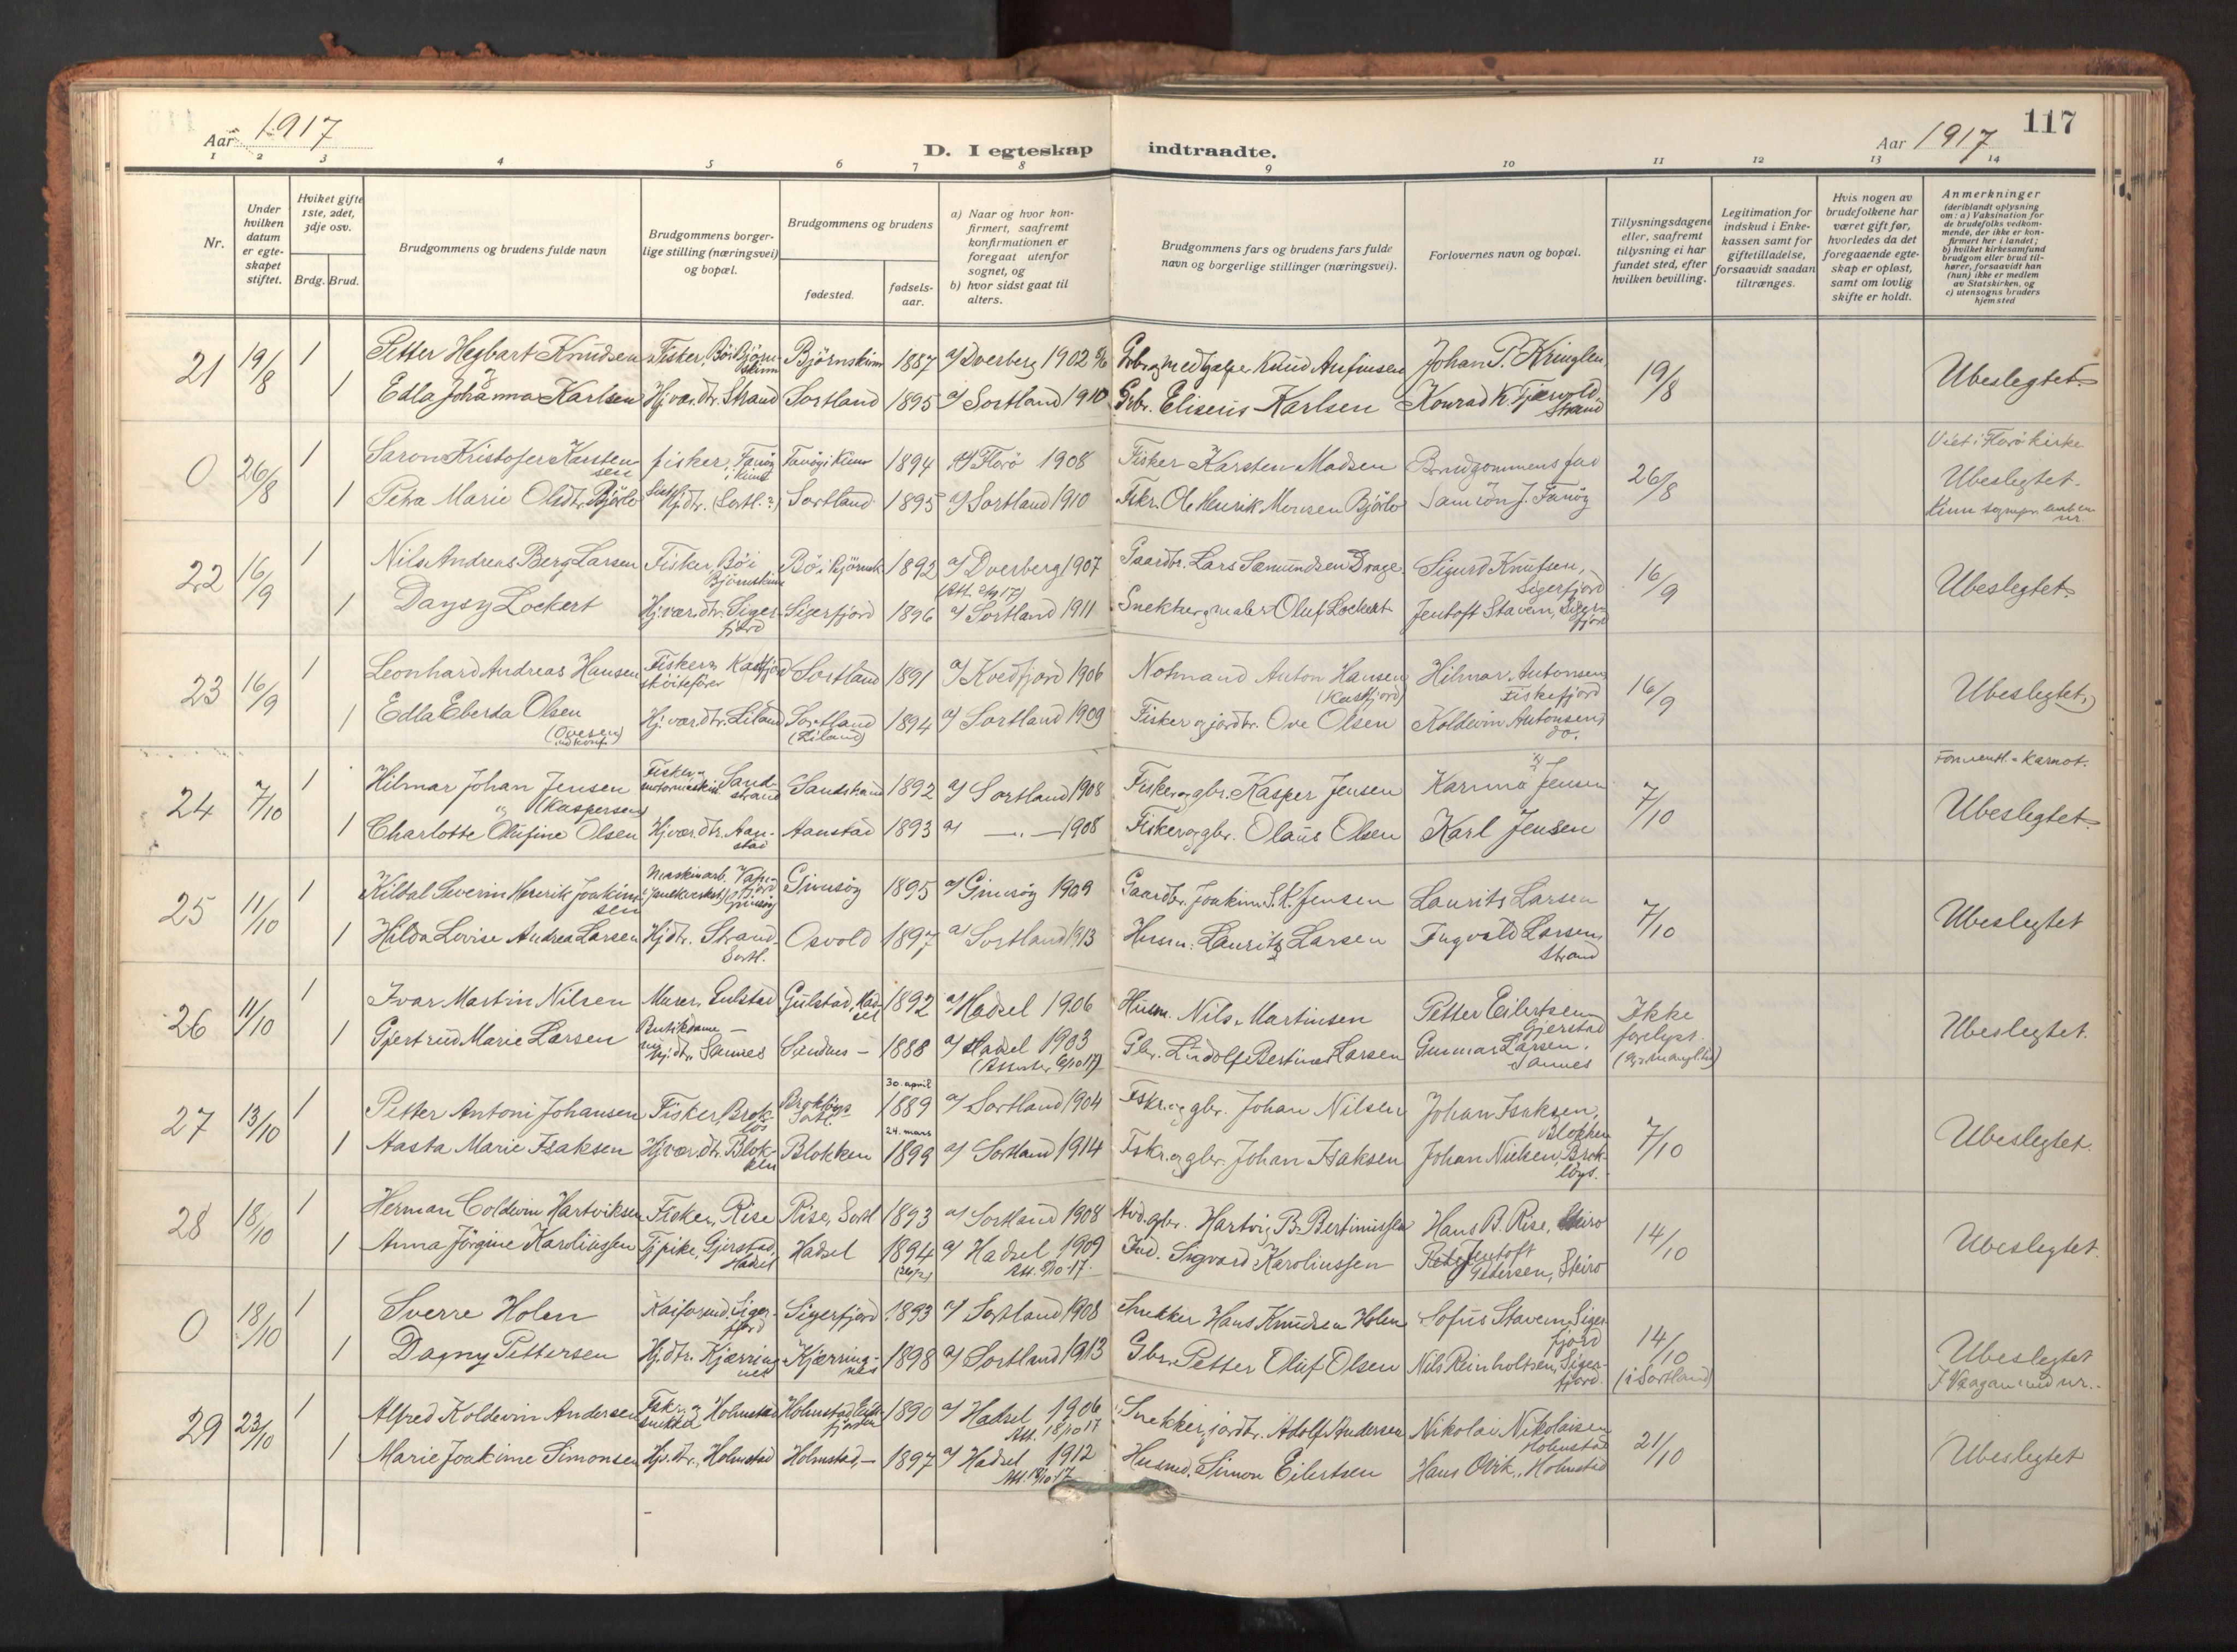 117
Aar 1917
D. I egteskap indtraadte.
Aar 1917
1 2 3 4 5 6 7 8 9 10 11 12 13 14
Nr.
Under hvilken datum er egteskapet stiftet.
Hviket gifte 1ste, 2det, 3dje osv.
Brdg. Brud.
Brudgommens og brudens fulde navn
Brudgommens borgerlige stilling (næringsvei) og bopæl.
Brudgommens og brudens
fødested.
fødselsaar.
a) Naar og hvor konfirmert, saafremt konfirmationen er foregaat utenfor sognet, og
b) hvor sidst gaat til alters.
Brudgommens fars og brudens fars fulde navn og borgerlige stillinger (næringsvei).
Forlovernes navn og bopæl.
Tillysningsdagene eller, saafremt tillysning ei har fundet sted, efter hvilken bevilling.
Legitimation for indskud i Enkekassen samt for giftetilladelse, forsaavidt saadan tiltrænges.
Hvis nogen av brudefolkene har været gift før, hvorledes da det foregaaende egteskap er opløst, samt om lovlig skifte er holdt.
Anmerkninger (deriblandt oplysning om: a) Vaksination for de brudefolks vedkommende, der ikke er konfirmert her i landet; b) hvilket kirkesamfund brudgom eller brud tilhører, forsaavidt han (hun) ikke er medlem av Statskirken, og c) utensogns bruders hjemsted
21 19/8 1 Petter Hegbart Knudsen Fisker, Bö i Björnskinn Björnskinn 1887 a/ Dverberg 1902 Gbr. og medhjælper Knud Anfinsen Johan P. Kringlen 19/8 Ubeslegtet
1 Edla Johanna Karlsen Hj.vær.dtr. Strand Sortland 1895 a/ Sortland 1910 Gbr. Eliseus Karlsen Konrad K. Strand
0 26/8 1 Saron Kristofer Karstensen fisker, Fanöy i Kinn Fanöy i Kinn 1894 a/ Florö 1908 Fisker Karsten Madsen Brudgommens far 26/8 Viet i Florö kirke
1 Petra Marie Olsdtr. Björlo Hj.dtr. (Sortl.?) Sortland 1895 a/ Sortland 1910 Fskr. Ole Henrik Monsen Björlo Samson J. Fanöy Ubeslegtet.
22 16/9 1 Nils Andreas Berg Larsen Fisker, Bö i Björnskinn Bö i Björnsk 1892 a/ Dverberg 1907 Gaardbr. Lars Samundsen Drage Sigurd Knutsen, Sigerfjord 16/9 Ubeslegtet
1 Daysy Lockert Hj.vær.dtr. Sigerfjord Sigerfjord 1896 a/ Sortland 1911 Snekker og maler Oluf Lockert Jentoft Stavem, Sigerfjord
23 16/9 1 Leonhard Andreas Hansen Fisker og sköitefører Kasfjord Sortland 1891 a/ Kvedfjord 1906 Notmand Anton Hansen (Kasfjord) Hilmar Antonsen Fiskefjord 16/9 Ubeslegtet
1 Edla Eberda Olsen (Ovesen) Hj.vær.dtr. Liland Sortland (Liland) 1894 a/ Sortland 1909 Fisker og jordbr. Ove Olsen Koldevin Antonsen, do.
24 7/10 1 Hilmar Johan Jensen (Kaspersen) Fisker og motormaskin. Sandstrand Sandstrand 1892 a/ Sortland 1908 Fisker og gbr. Kasper Jensen Jensen 7/10 Ubeslegtet.
1 Charlotte Olufine Olsen Hj.vær.dtr. Aanstad Aanstad 1893 a/ —„— 1908 Fisker og gbr. Olaus Olsen Karl Jensen
25 11/10 1 Kildal Severin Henrik Joakimsen Maskinarb. Gimsöy 1895 a/ Gimsöy 1909 Gaardbr. Joakim S. K. Jensen Laurits Larsen 7/10 Ubeslegtet
1 Hilda Lovise Andrea Larsen Hj.dtr. Strand, Sortl. Osvold 1897 a/ Sortland 1913 Husm. Lauritz Larsen Ingvald Larsen, Strand
26 11/10 1 Ivar Martin Nilsen Murer, Gulstad Gulstad, Hadsel 1892 a/ Hadsel 1906 Husm. Nils Martinsen Petter Eilertsen Gjerstad Ikke forelyst. Ubeslegtet.
1 Gjertrud Marie Larsen Butikdame Hj.dtr. Sannes Sandnes — 1888 a/ Hadsel 1903 Gbr. Ludolf Bertinus Larsen Gunnar Larsen, Sannes
27 13/10 1 Petter Antoni Johansen Fisker, Brokløs Brokløys Sortl. 30. april 1889 a/ Sortland 1904 Fskr. og gbr. Johan Nilsen Johan Isaksen, Blokken 7/10 Ubeslegtet.
1 Aasta Marie Isaksen Hj.vær.dtr. Blokken Blokken 24. mars 1899 a/ Sortland 1914 Fskr. og gbr. Johan Isaksen Johan Nielsen, Brokløys.
28 18/10 1 Herman Coldevin Hartviksen Fisker, Rise Rise, Sortl 1893 a/ Sortland 1908 gbr. Hartvig B. Bertinussen Hans B. Rise, Steiro 14/10 Ubeslegtet.
1 Anna Jörgine Karoliussen Tj.pike, Gjerstad, Hadsel Hadsel 1894 a/ Hadsel 1909 Ind. Sigvard Karoliussen Jentoft Petersen, Steiro
0 18/10 1 Sverre Holen Kaiformd. Sigerfjord Sigerfjord 1893 a/ Sortland 1908 Snekker Hans Knudsen Holen Sofus Stavem, Sigerfjord 14/10 (i Sortland) Ubeslegtet
1 Dagny Pettersen Hj.dtr. Kjærringnes Kjærringnes 1898 a/ Sortland 1913 Gbr. Petter Oluf Olsen Nils Reinholtsen, Sigerfjord.
29 23/10 1 Alfred Koldevin Andersen Fskr. og snekker Holmstad Holmstad, Eidsfjorden 1890 a/ Hadsel 1906 Att. 18/10 17 Snekker, jordbr. Adolf Andersen Nikolai Nikolaisen Holmstad 21/10 Ubeslegtet
1 Marie Joakime Simonsen Hj.dtr., Holmstad Holmstad, — 1897 a/ Hadsel 1912 Husmd. Simon Eilertsen Hans Olvik, Holmstad